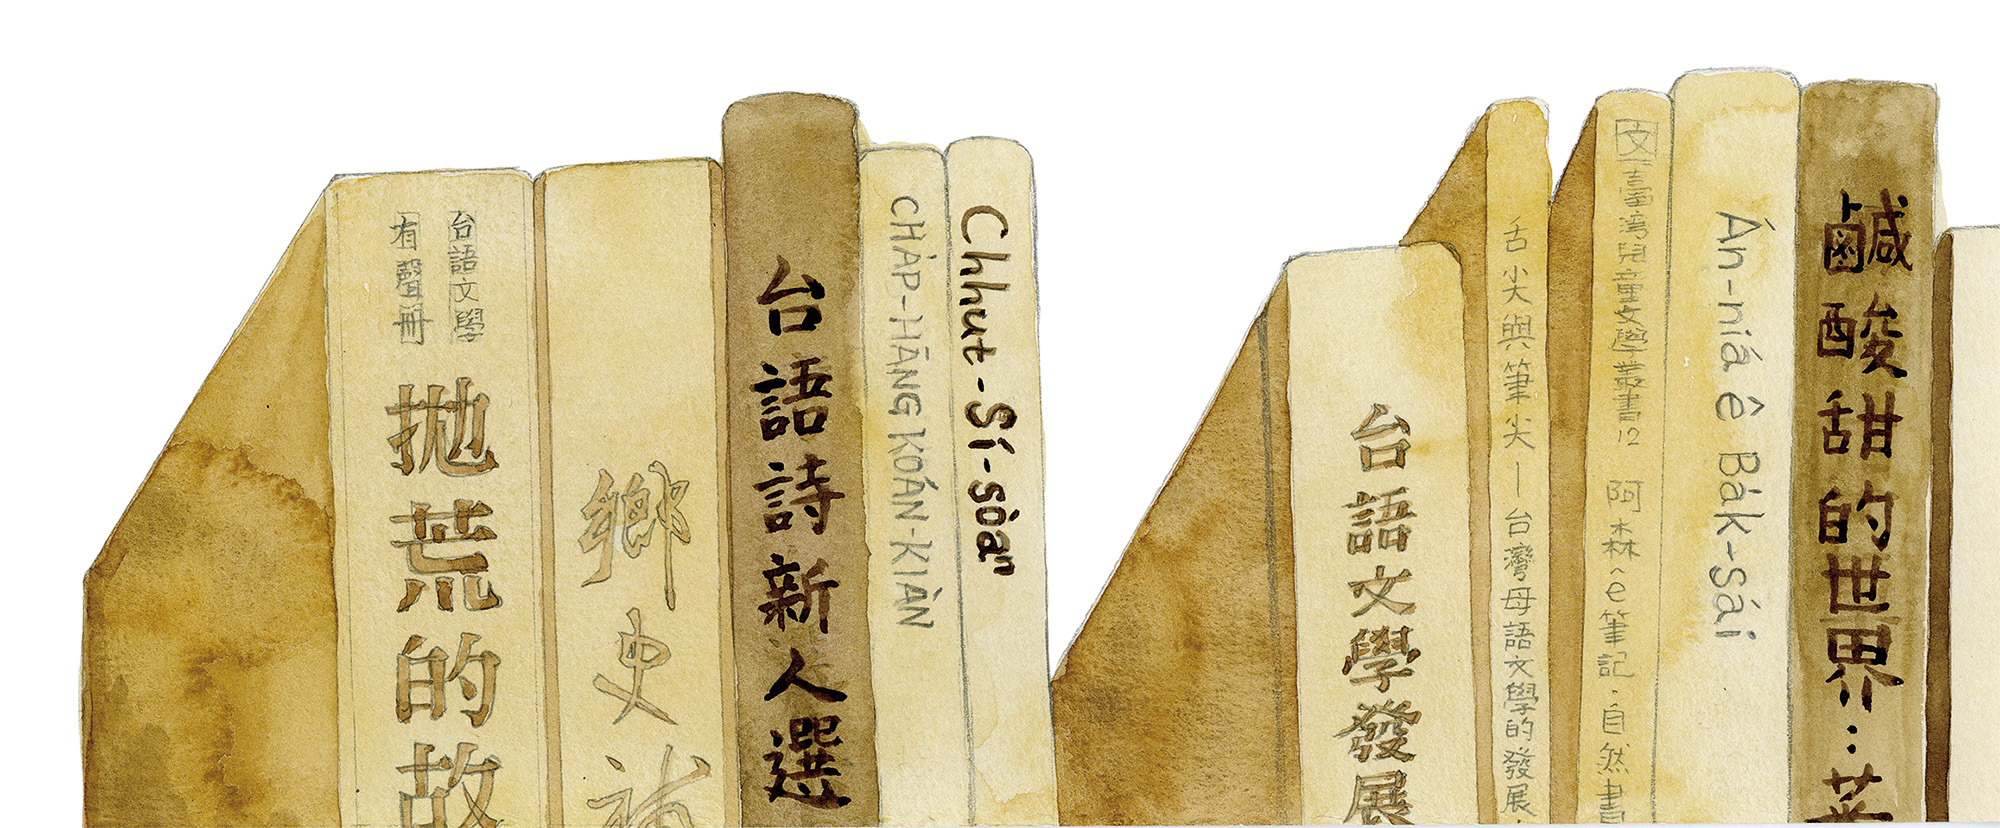 台語文學
有聲冊
拋荒的故
鄉史補
台語詩新人選
CHA̍P-HĀNG KOÁN-KIÀN
Chhut-Sí-sòaⁿ
台語文學發展
舌尖與筆尖—台灣母語文學的發展
文 臺灣兒童文學叢書12 阿森~e筆記．自然書
Án-niá ê Ba̍k-sái
鹹酸甜的世界…菜